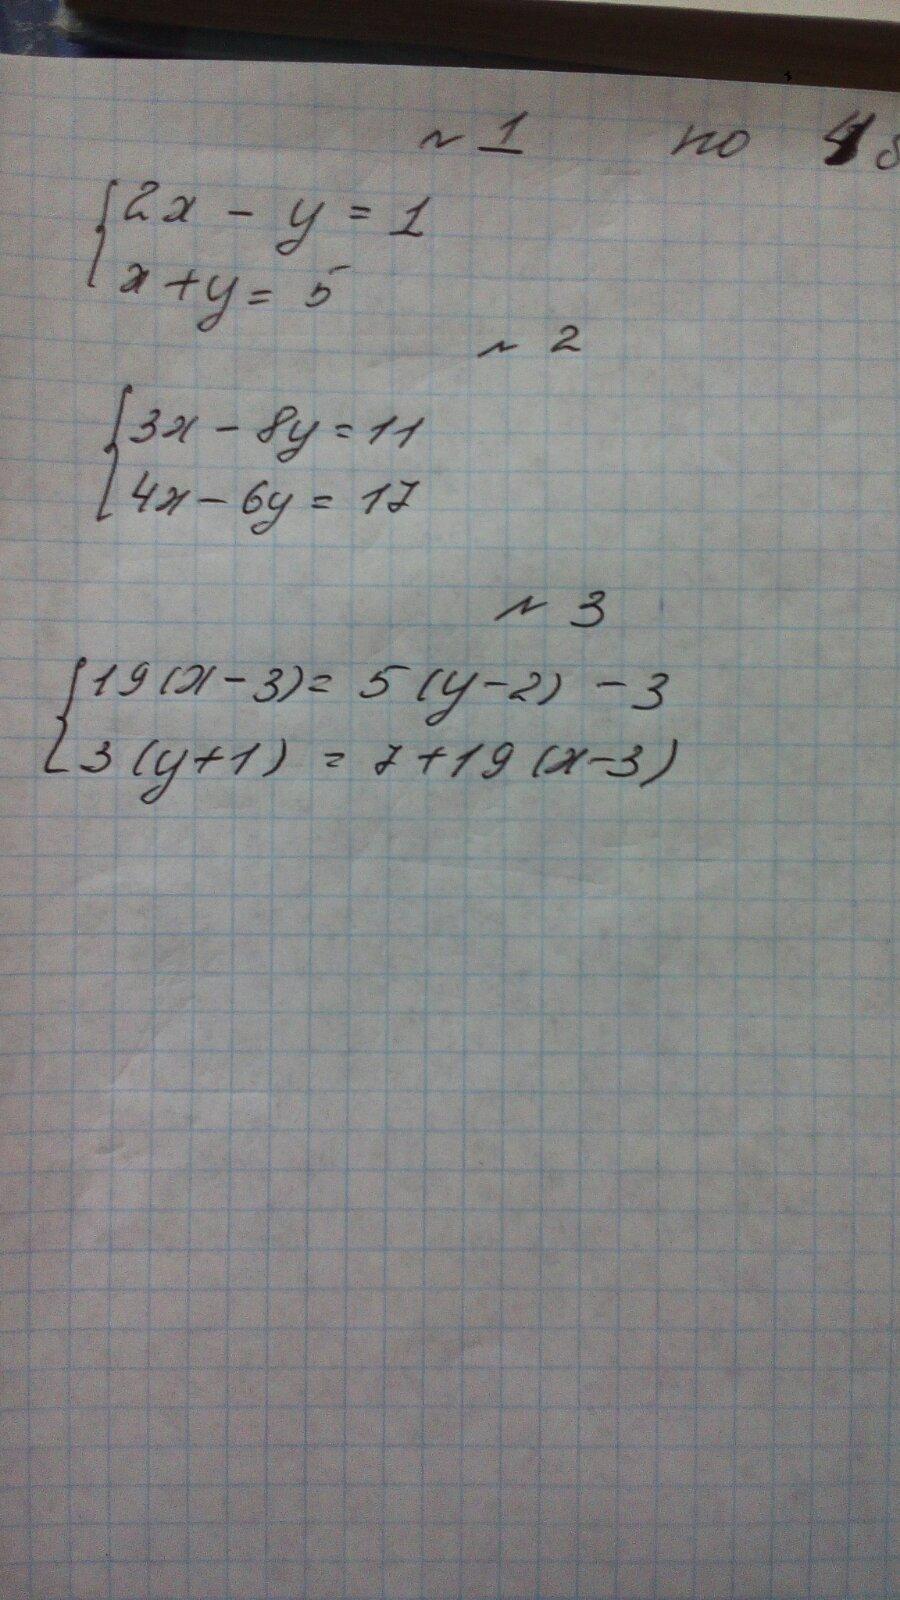 № 1 по 4
2x - y = 1
x + y = 5
№ 2
3x - 8y = 11
4x - 6y = 17
№ 3
19(x-3) = 5(y-2) - 3
3(y+1) = 7+19(x-3)